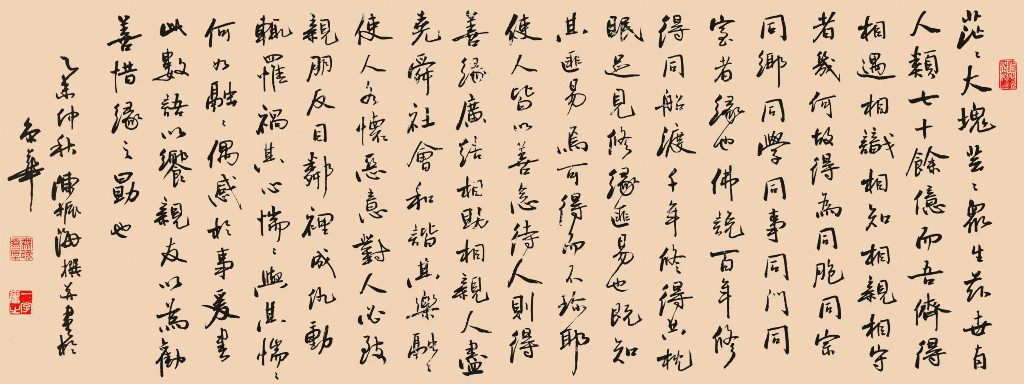 茫〻大塊芸〻眾生茲世有
人類七十餘億而吾儕得
相遇相識相知相親相守
者幾何故得為同胞同宗
同鄉同學同事同門同
室者緣也佛說百年修
得同船渡千年修得共枕
眠是見修緣匪易也既知
其匪易焉可得而不珍耶
使人皆以善念待人則得
善緣廣結相助相親人盡
堯舜社會和諧其樂融〻
使人各懷惡意對人必致
親朋反目鄰裡成仇動
輒罹禍其心惴〻與其惴〻
何如融〻偶感於事爰書
此數語以饗親友以為勸
善惜緣之勖也
乙未仲秋陳振海撰并書於
京華